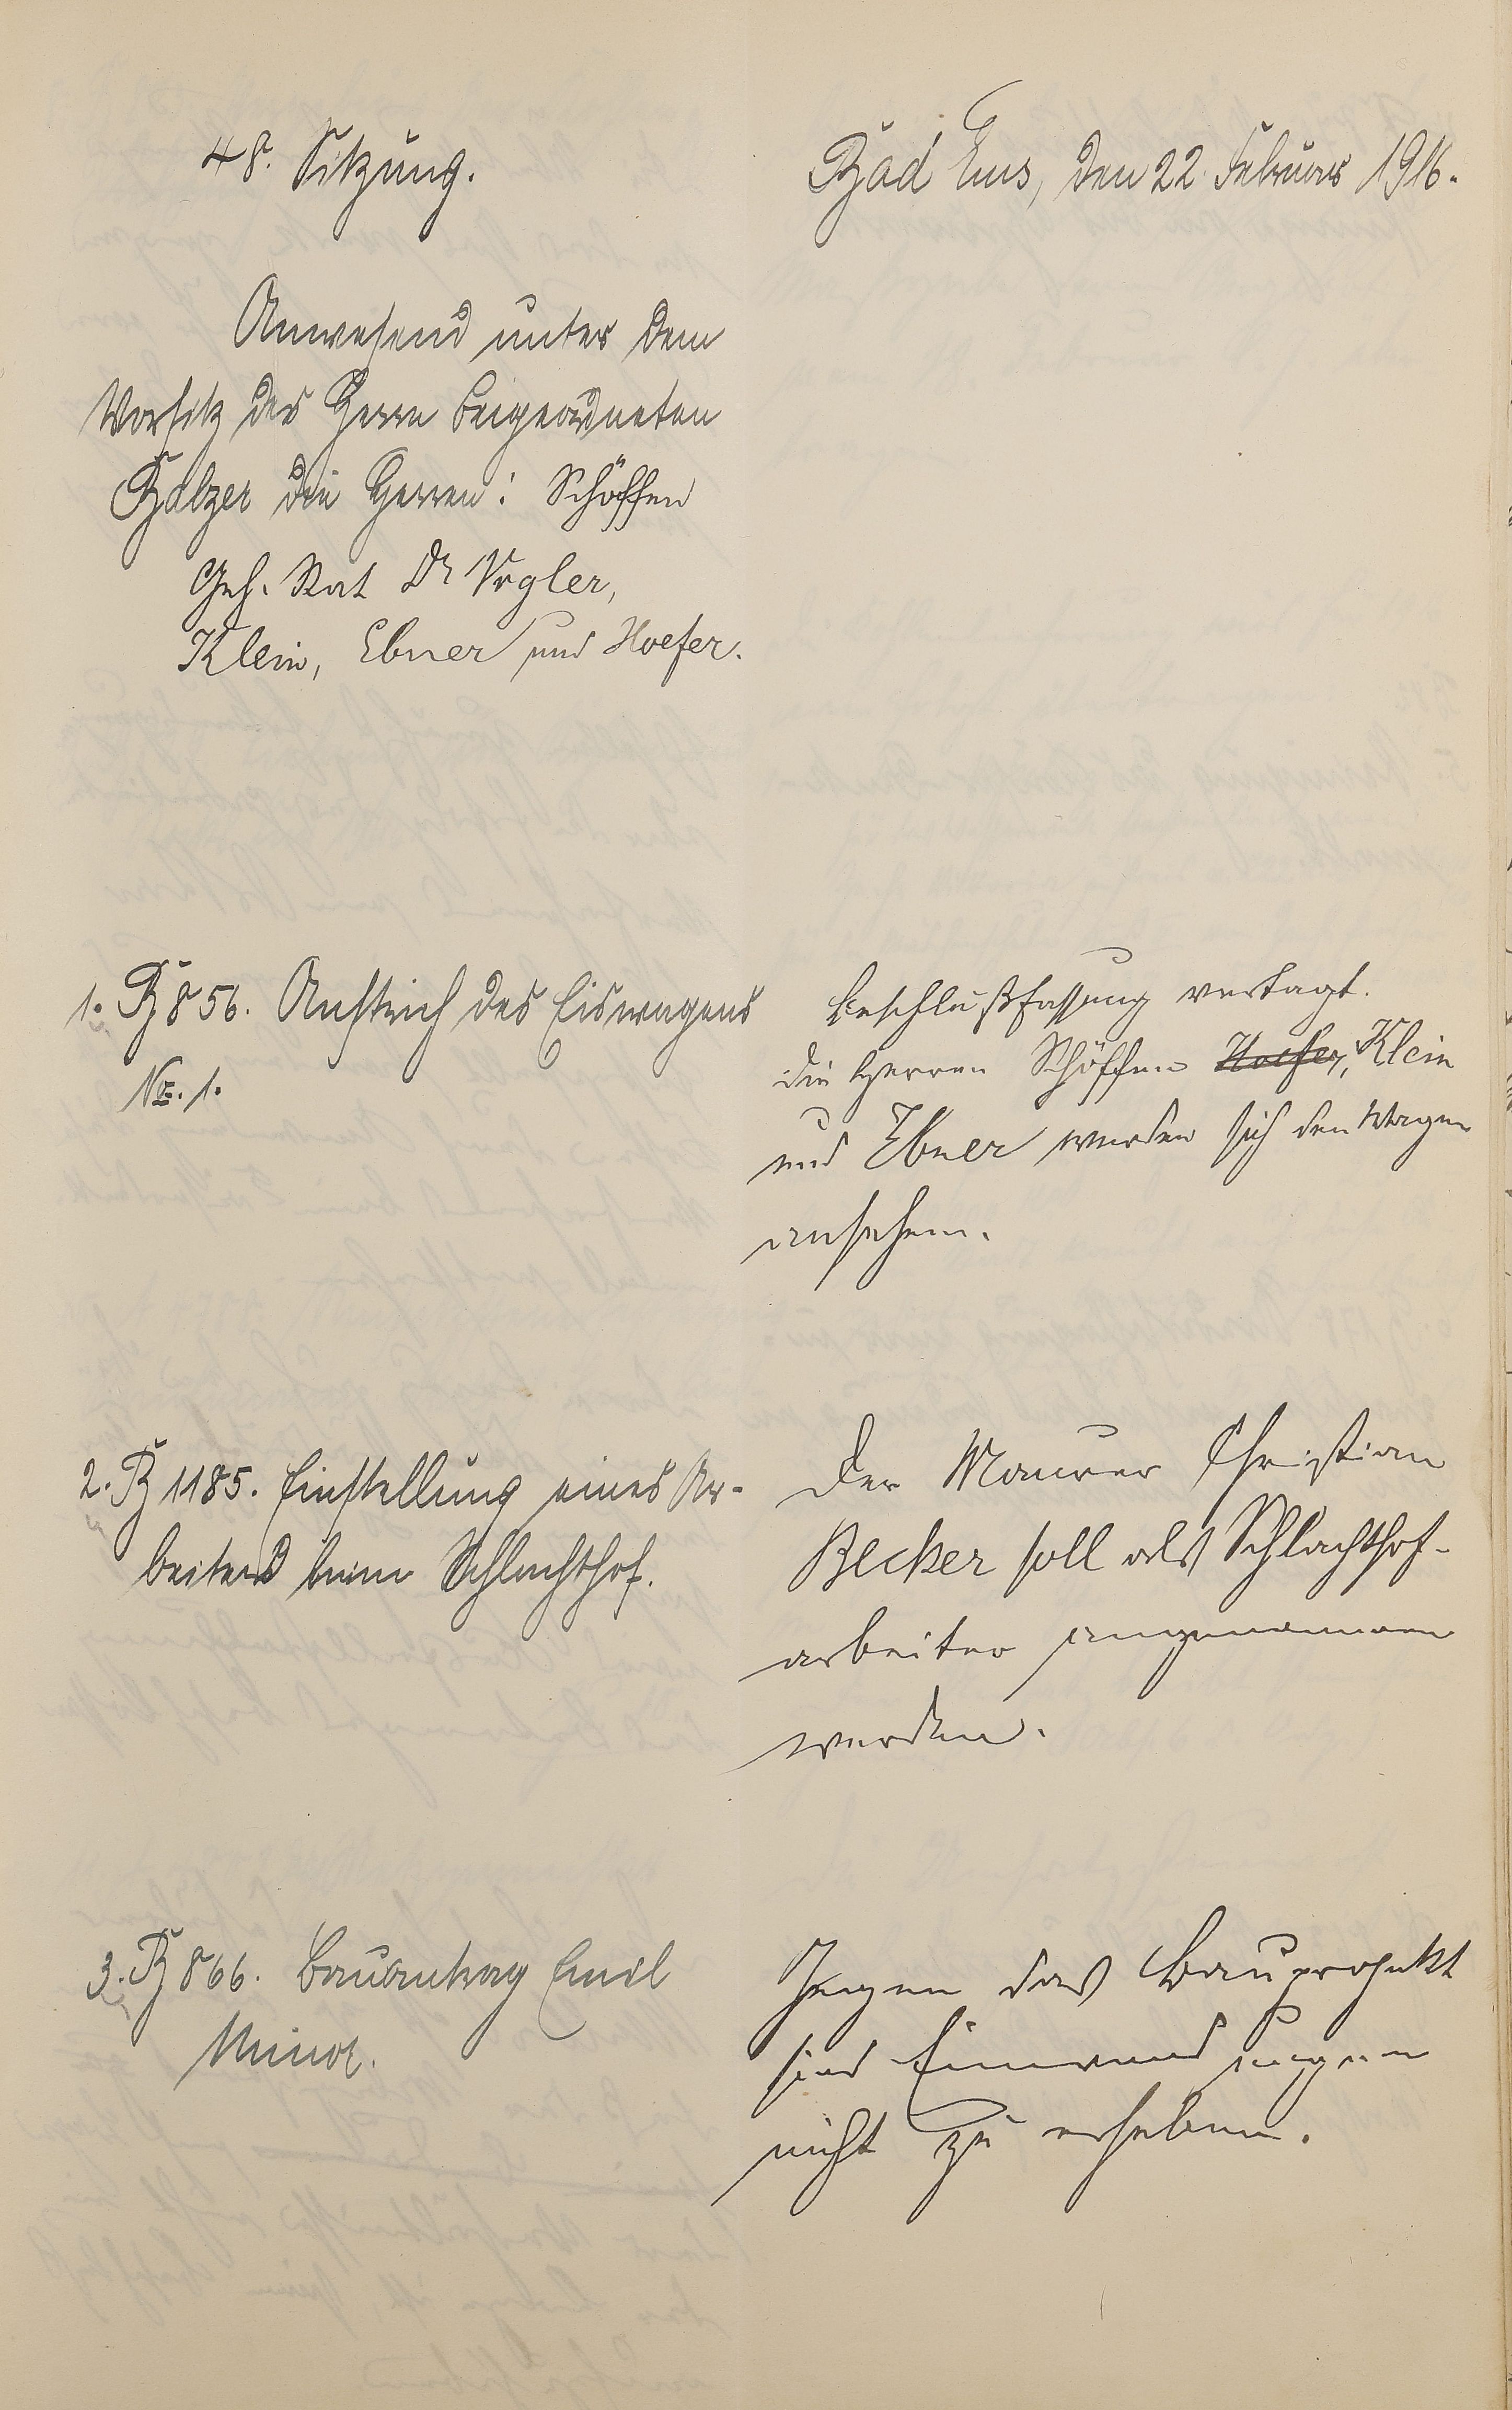 48. Sitzung.
Bad Ems, den 22. Februar 1916.
Anwesend unter dem
Vorsitz des Herrn Beigeordneten
Balzer die Herren: Schöffen
Geh. Rat Dr Vogler,
Klein, Ebner und Hoefer.
1. B 856. Anstrich des Eiswagens
No. 1.
Beschlußfassung vertagt.
Die Herren Schöffen Hoefer, Klein
und Ebner werden sich den Wagen
ansehen.
2. B 1185. Einstellung eines Ar-
beiters beim Schlachthof.
Der Maurer Christian
Becker soll als Schlachthof-
arbeiter angenommen
werden.
3. B 866. Bauantrag Emil
Minor.
Gegen das Bauprojekt
sind Einwendungen
nicht zu erheben.